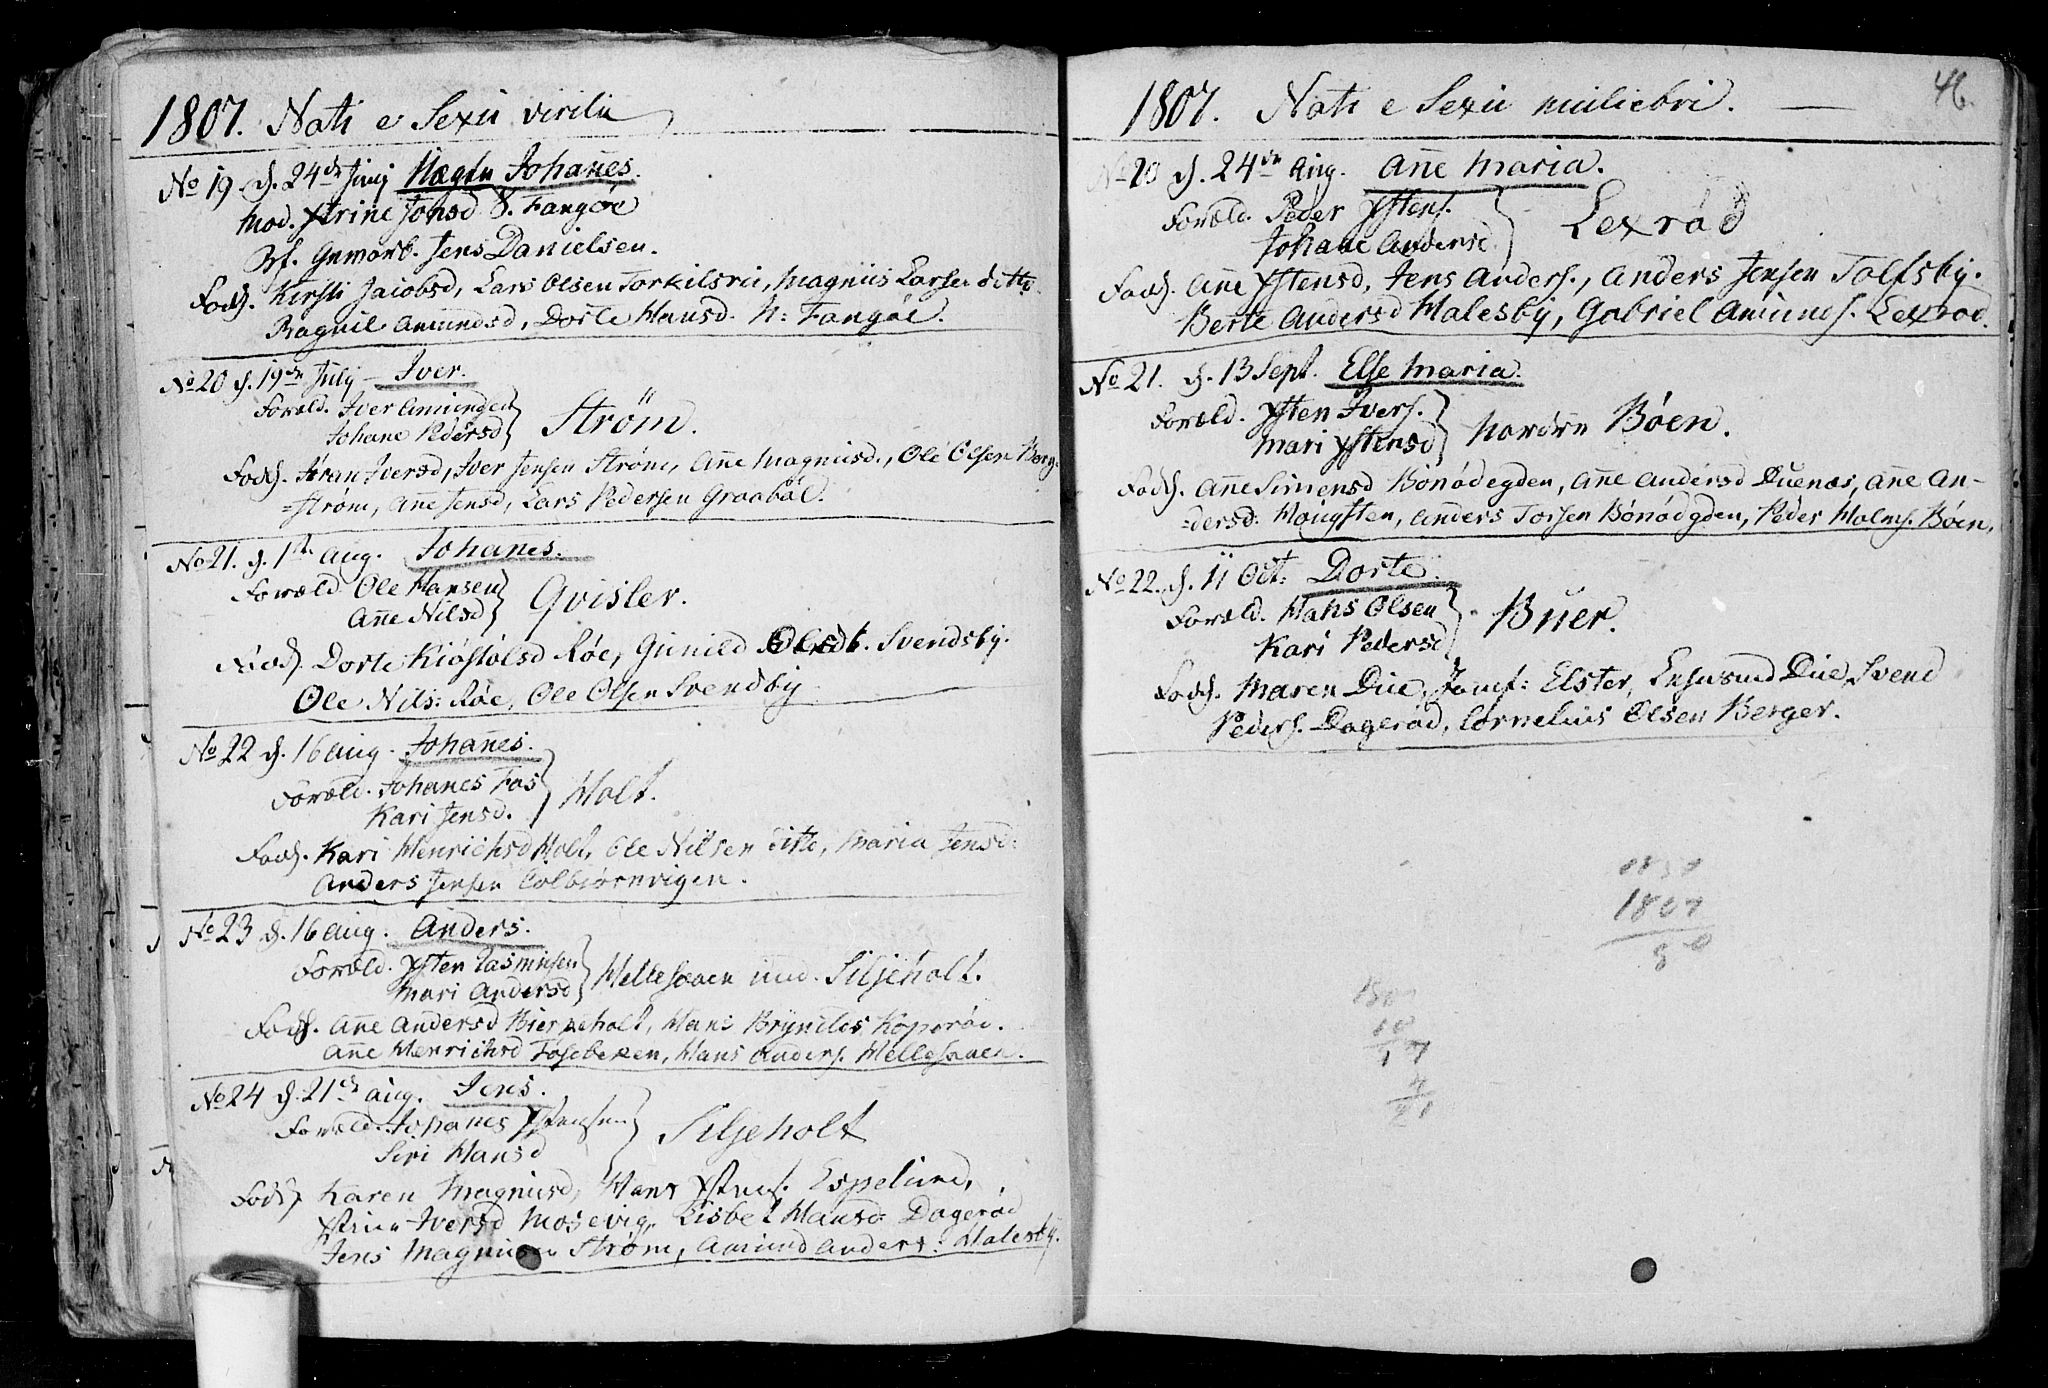 1807. Nati e Sexu virili
No 19 d. 24de Junj Uægte Johanes.
Mod. Xtrine Jonsd S. Fangøe
Bf. Gmarb. Jens Danielsen.
Fadd. Kirsti Jacobsd, Lars Olsen Torkilsrü, Magnus Larsen ditto
Ragnil Amundsd, Dorte Hansd. N: Fangøe.
No 20 d. 19de July - Iver.
Foræld. Iver Amundsen
Johane Pedersd } Strøm.
Fadd. Jøran Iversd, Iver Jensen Strøm, Ane Magnusd., Ole Olsen Berg-
=strøm, Ane Jensd, Lars Pedersen Graabøl.
No 21. d. 1ste Aug. Johanes.
Foræld Ole Hansen
Ane Nilsd } Qvisler.
Fadd. Dorte Kiøstølsd Røe, Gunild Olsdt. Svendsby.
Ole Nils: Røe, Ole Olsen Svendsby
No 22 d. 16 Aug. Johanes.
Foræld. Johanes Fos
Kari Jensd. } Holt.
Fadd. Kari Henrichsd Holt, Ole Nilsen ditto, Maria Jensd:
Anders Jensen Colbiørnvigen.
No 23 d. 16 Aug. Anders.
Foræld. Ysten Rasmusen
Mari Andersd } Hellesaaen und. Siljeholt.
Fadd. Ane Andersd Bierkeholt, Hans Bryniles. Koperøe.
Ane Henrichsd Foseberen, Hans Anders. Hellesaaen.
No 24 d. 21de Aug. Jens.
Foræld. Johanes Ystensen
Siri Hansd } Siljeholt
Fadd. Karen Magnusd, Hans Ystens. Espelund,
Xtrine Iversd Mosevig, Lisbet Hansd: Dagerød
Jens Magnusen Strøm, Amund Anders: Halesby.
46.
1807. Nati e Sexu muliebri.
No 20 d. 24de Aug. Ane Maria.
Foræld. Peder Ystens.
Johane Andersd } Lexrød
Fadd. Ane Ystensd, Jens Anders., Anders Jensen Tolfsby.
Berte Andersd Halesby, Gabriel Amunds. Lexrød.
No 21. d. 13 Sept. Else Maria.
Foræld. Ysten Ivers.
Mari Ystensd } Nordre Bøen.
Fadd. Ane Simensd Bønødegden, Ane Andersd Duenæs, Ane An-
=dersd: Houysten, Anders Torsen Bønødgden, Peder Holms. Bøen.
No 22. d. 11 Oct: Dorte.
Foræld. Hans Olsen
Kari Pedersd } Buer.
Fadd. Maren Due, Jomf: Elster, Due, Svend
Peders. Dagerød, Cornelius Olsen Berger.
1857
1807
50